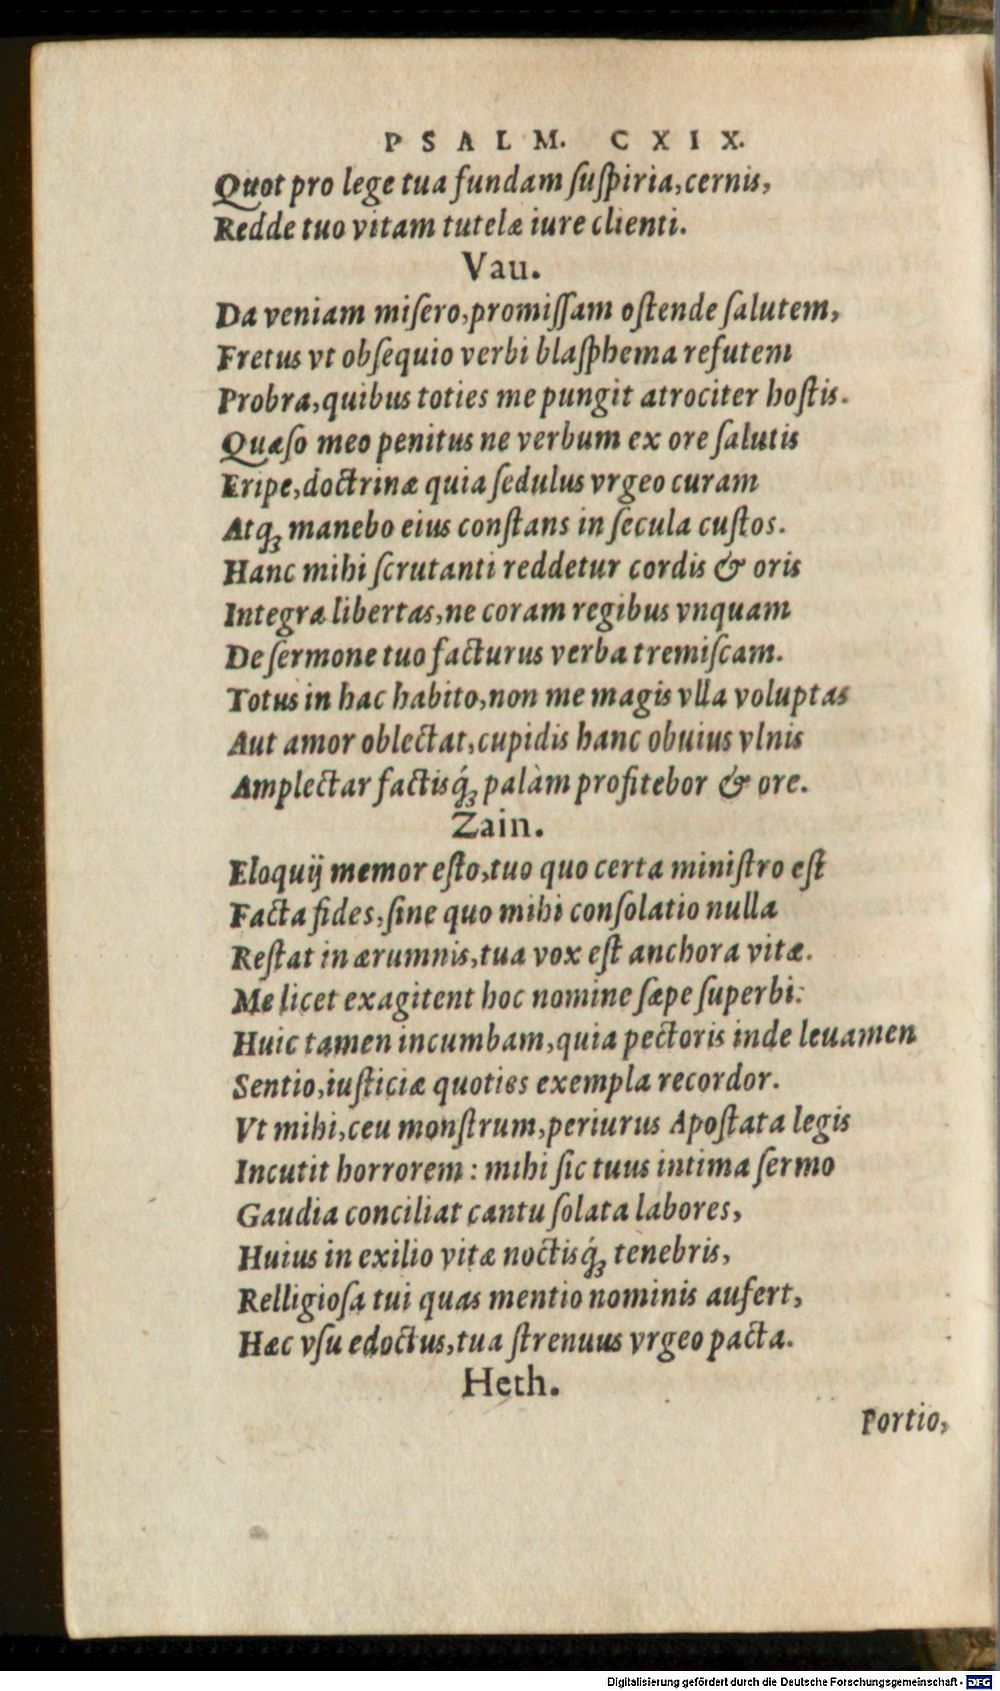 PSALM. CXIX.
Quot pro lege tua fundam ſuſpiria, cernis,
Redde tuo vitam tutelæ iure clienti.
Vau.
Da veniam miſero, promiſſam oſtende ſalutem,
Fretus vt obſequio verbi blaſphema refutem
Probra, quibus toties me pungit atrociter hoſtis.
Quæſo meo penitus ne verbum ex ore ſalutis
Eripe, doctrinæ quia ſedulus vrgeo curam
Atq́ꝫ manebo eius conſtans in ſecula cuſtos.
Hanc mihi ſcrutanti reddetur cordis & oris
Integra libertas, ne coram regibus vnquam
De ſermone tuo facturus verba tremiſcam.
Totus in hac habito, non me magis vlla voluptas
Aut amor oblectat, cupidis hanc obuius vlnis
Amplectar factisq́ꝫ palàm profitebor & ore.
Zain.
Eloquij memor eſto, tuo quo certa miniſtro eſt
Facta fides, ſine quo mihi conſolatio nulla
Reſtat in ærumnis, tua vox eſt anchora vitæ.
Me licet exagitent hoc nomine ſæpe ſuperbi:
Huic tamen incumbam, quia pectoris inde leuamen
Sentio, iuſticiæ quoties exempla recordor.
Vt mihi, ceu monſtrum, periurus Apoſtata legis
Incutit horrorem: mihi ſic tuus intima ſermo
Gaudia conciliat cantu ſolata labores,
Huius in exilio vitæ noctisq́ꝫ tenebris,
Relligioſa tui quas mentio nominis aufert,
Hæc vſu edoctus, tua ſtrenuus vrgeo pacta.
Heth.
Portio,
Digitalisierung gefördert durch die Deutsche Forschungsgemeinschaft - DFG